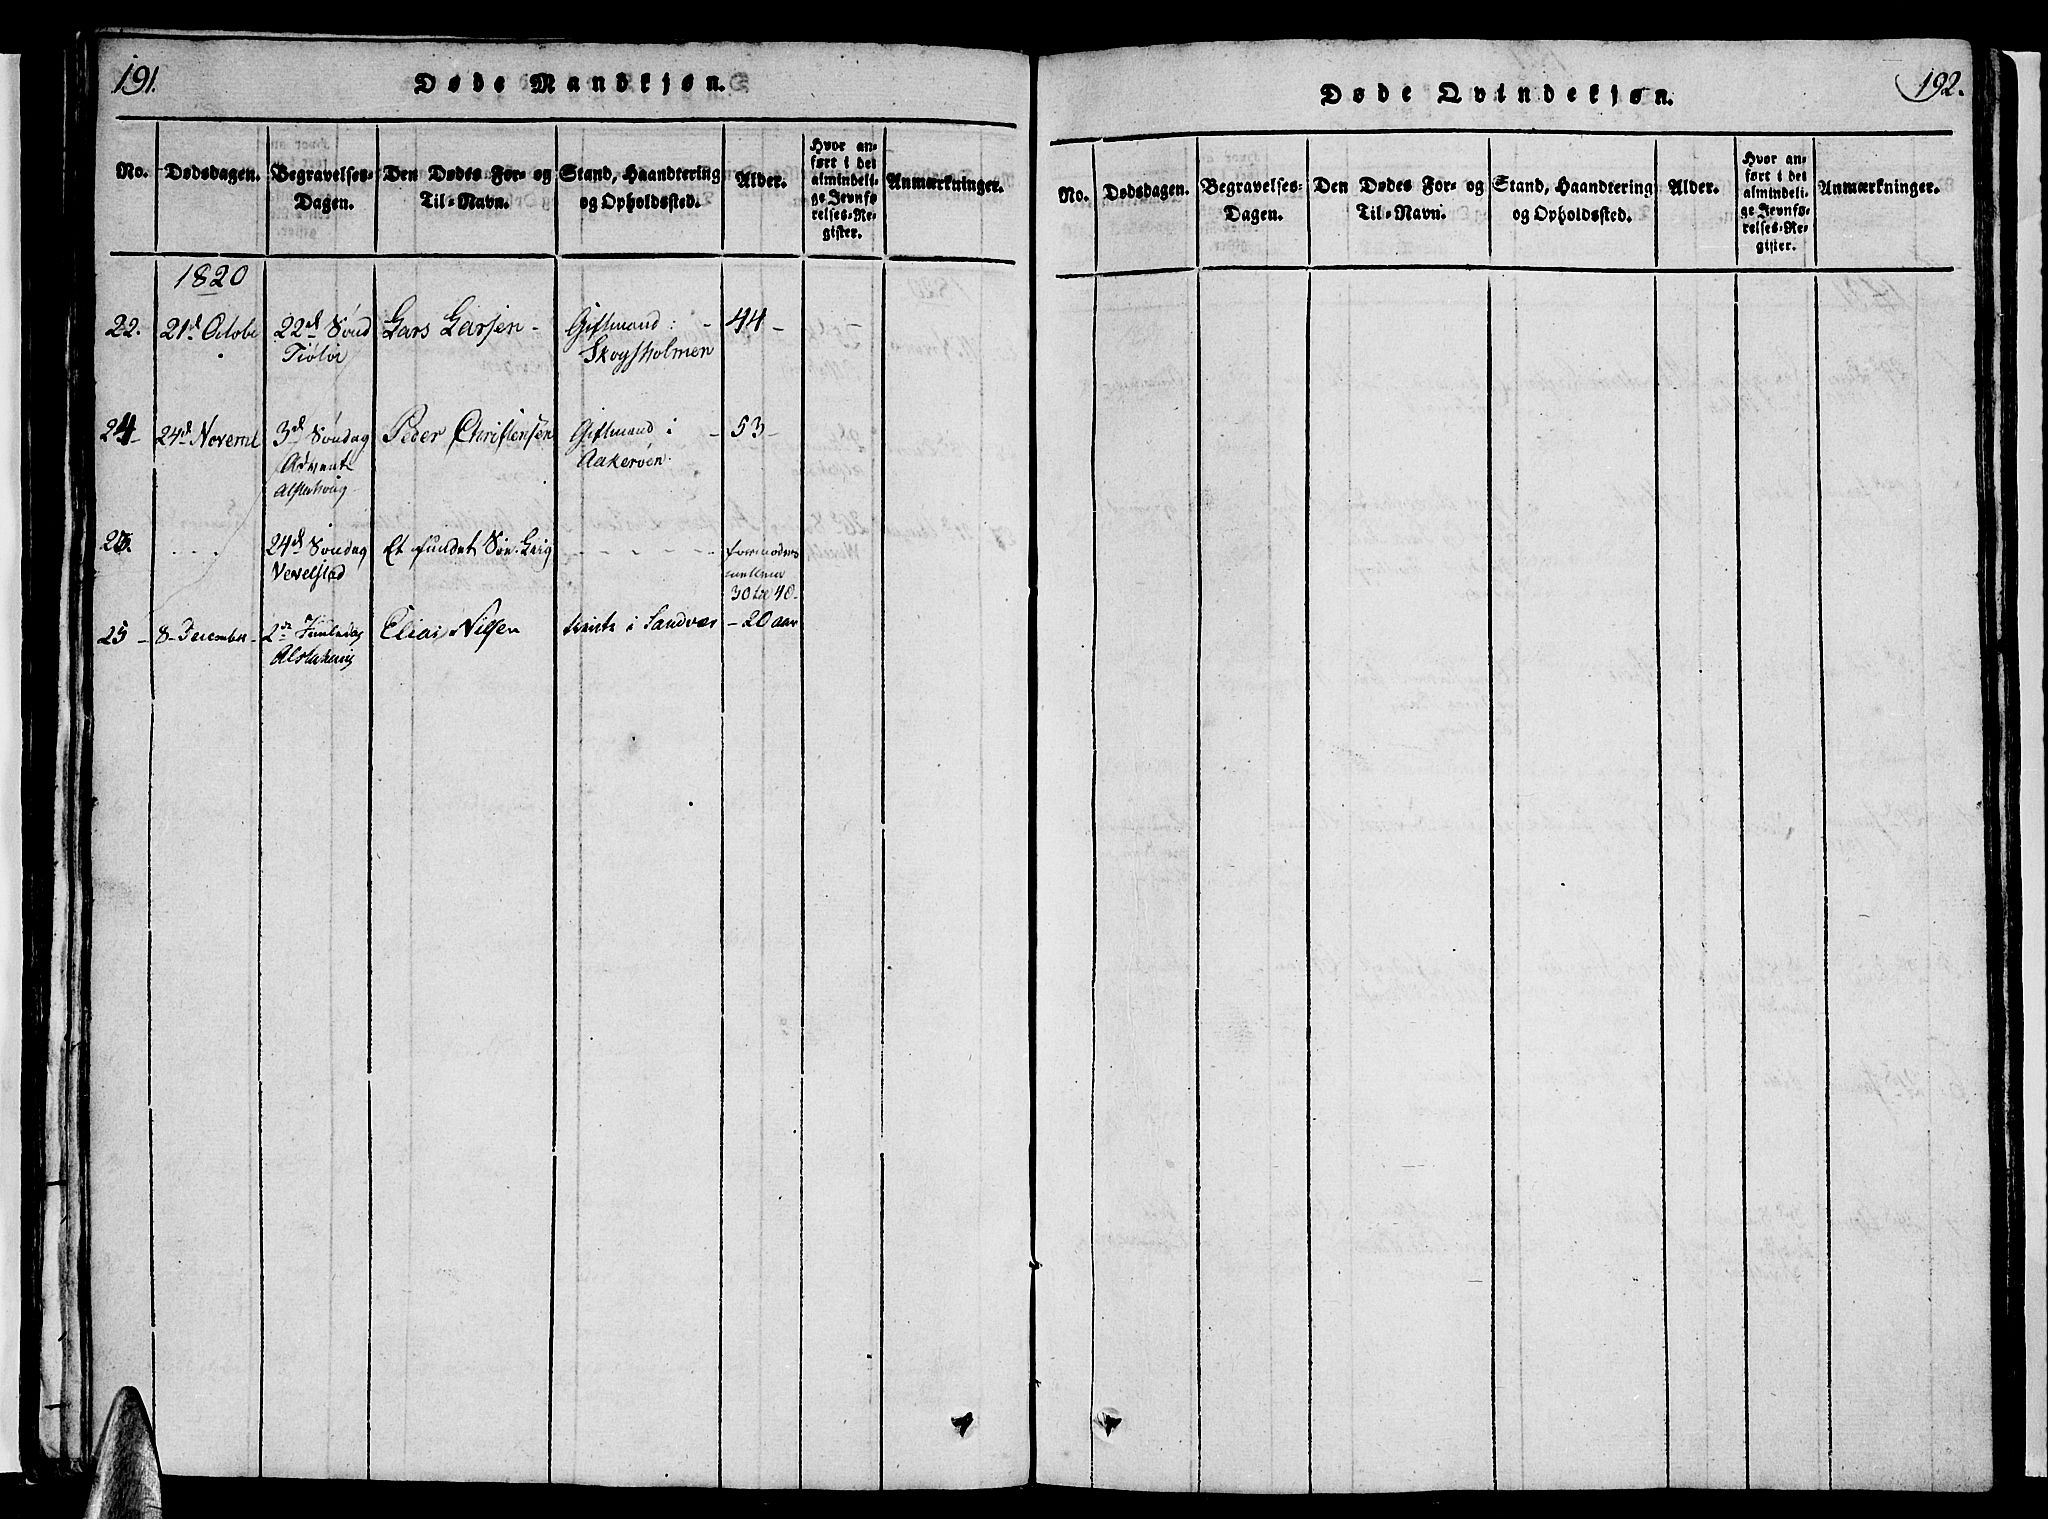 191.
Døde Mandkjøn.
No. Dødsdagen. Begravelses-Dagen. Den Dødes For- og Til-Navn. Stand, Haandtering og Opholdssted. Alder. Hvor anført i det almindelige Jevnførelses-Register. Anmærkninger.
1820
22. 21d Octobr 22d Sønd Lars Larsen - Giftmand : - 44 -
Tiøtø Skogsholmen
24 - 24d Novembr 3d Søndag Peder Christensen Giftmand i - 53 -
Advent Aakerøen
Alstahoug
23. . . . 24d Søndag Et fundet Søe-Liig - - - - - - formodentl
Vevelstad mellem
30 til 40 -
25 - 8 - December - 2d Juuledag Elias Nilsen i Sandvær - 20 aar
Alstahaug
192.
Døde Qvindekjøn.
No. Dødsdagen. Begravelses-Dagen. Den Dødes For- og Til-Navn. Stand, Haandtering og Opholdssted. Alder. Hvor anført i det almindelige Jevnførelses-Register. Anmærkninger.